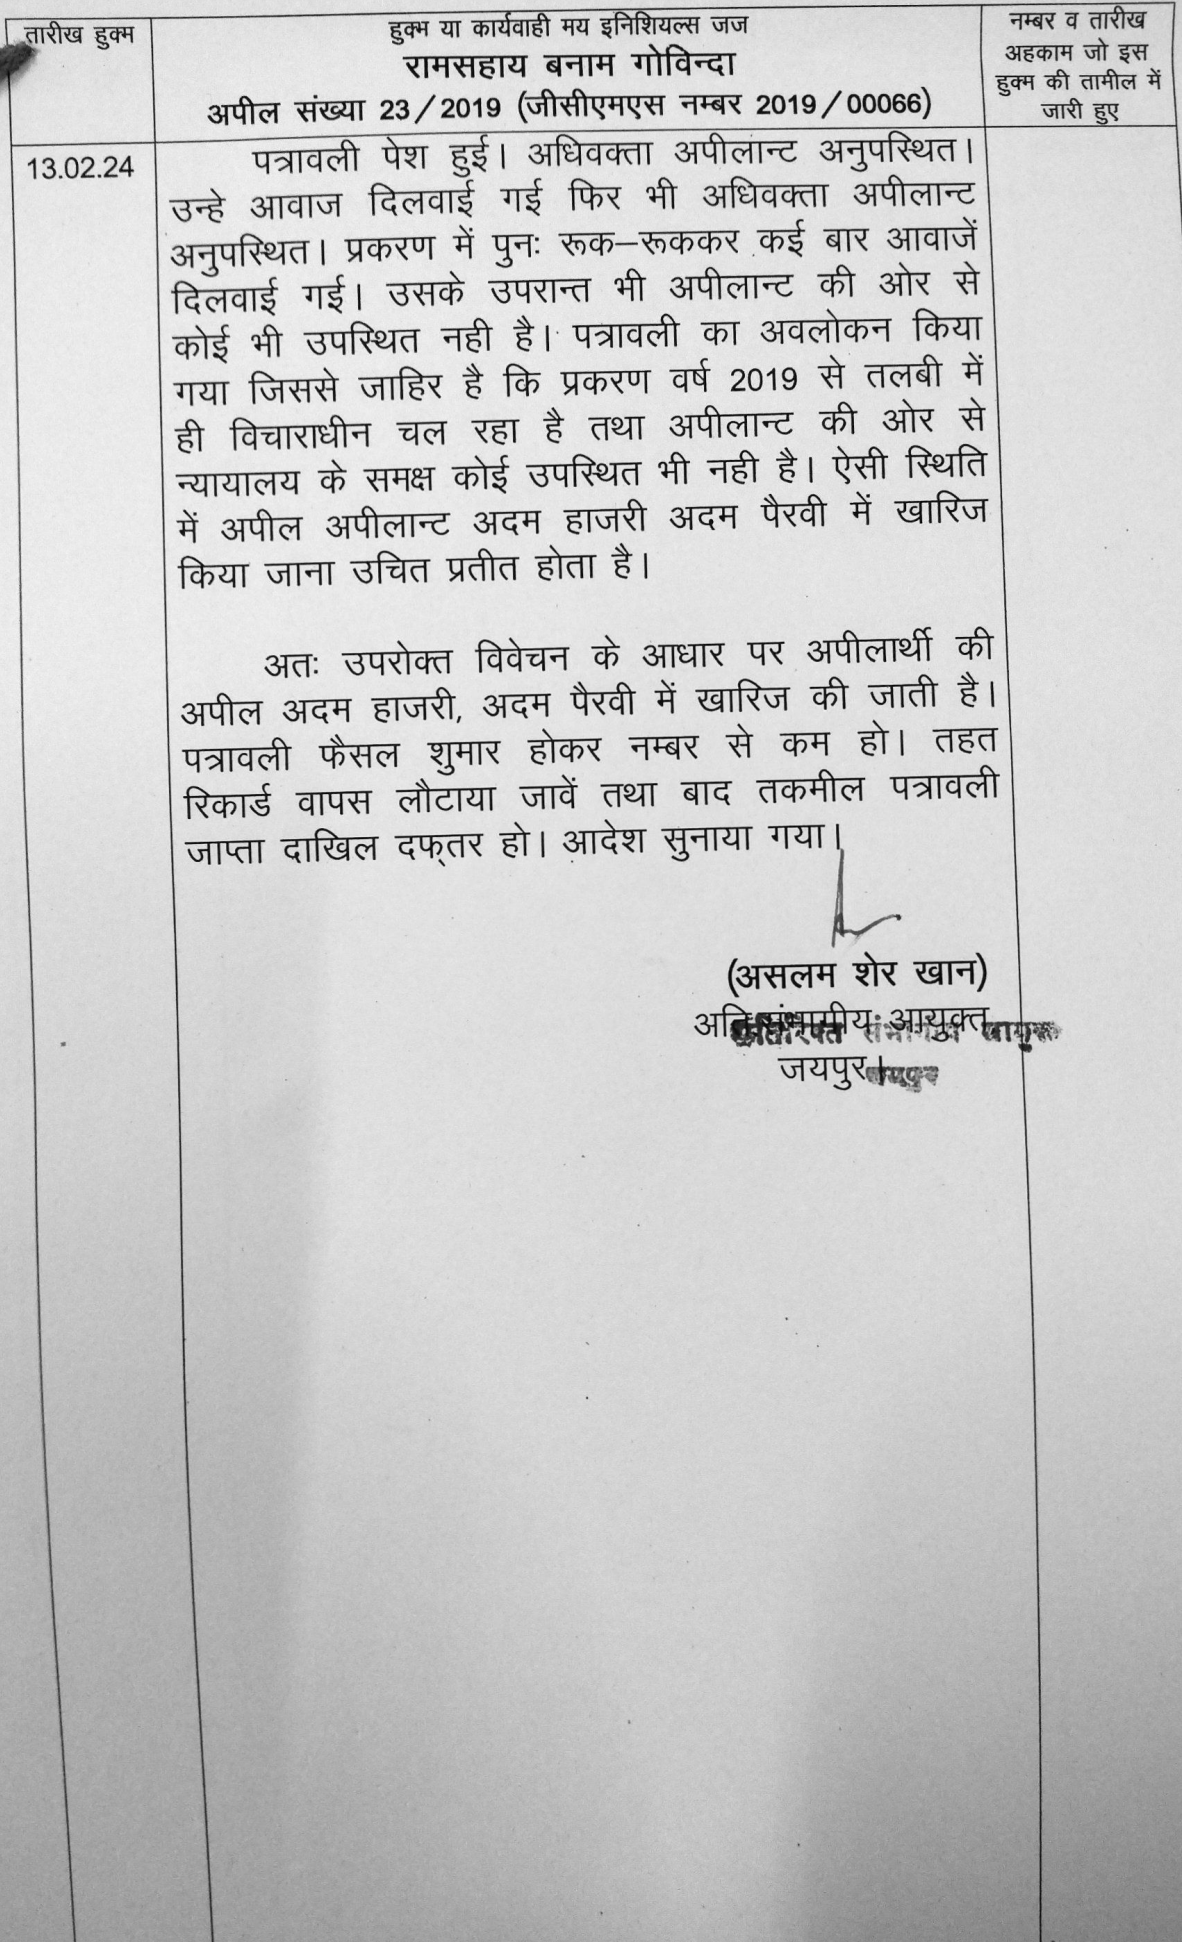 तारीख हुक्म
हुक्म या कार्यवाही मय इनिशियल्स जज
रामसहाय बनाम गोविन्दा
अपील संख्या 23/2019 (जीसीएमएस नम्बर 2019/00066)
नम्बर व तारीख
अहकाम जो इस
हुक्म की तामील में
जारी हुए
13.02.24
पत्रावली पेश हुई। अधिवक्ता अपीलान्ट अनुपस्थित।
उन्हे आवाज दिलवाई गई फिर भी अधिवक्ता अपीलान्ट
अनुपस्थित। प्रकरण में पुनः रूक–रूककर कई बार आवाजें
दिलवाई गई। उसके उपरान्त भी अपीलान्ट की ओर से
कोई भी उपस्थित नही है। पत्रावली का अवलोकन किया
गया जिससे जाहिर है कि प्रकरण वर्ष 2019 से तलबी में
ही विचाराधीन चल रहा है तथा अपीलान्ट की ओर से
न्यायालय के समक्ष कोई उपस्थित भी नही है। ऐसी स्थिति
में अपील अपीलान्ट अदम हाजरी अदम पैरवी में खारिज
किया जाना उचित प्रतीत होता है।
अतः उपरोक्त विवेचन के आधार पर अपीलार्थी की
अपील अदम हाजरी, अदम पैरवी में खारिज की जाती है।
पत्रावली फैसल शुमार होकर नम्बर से कम हो। तहत
रिकार्ड वापस लौटाया जावें तथा बाद तकमील पत्रावली
जाप्ता दाखिल दफ्तर हो। आदेश सुनाया गया।
(असलम शेर खान)
अति.संभागीय आयुक्त
जयपुर।